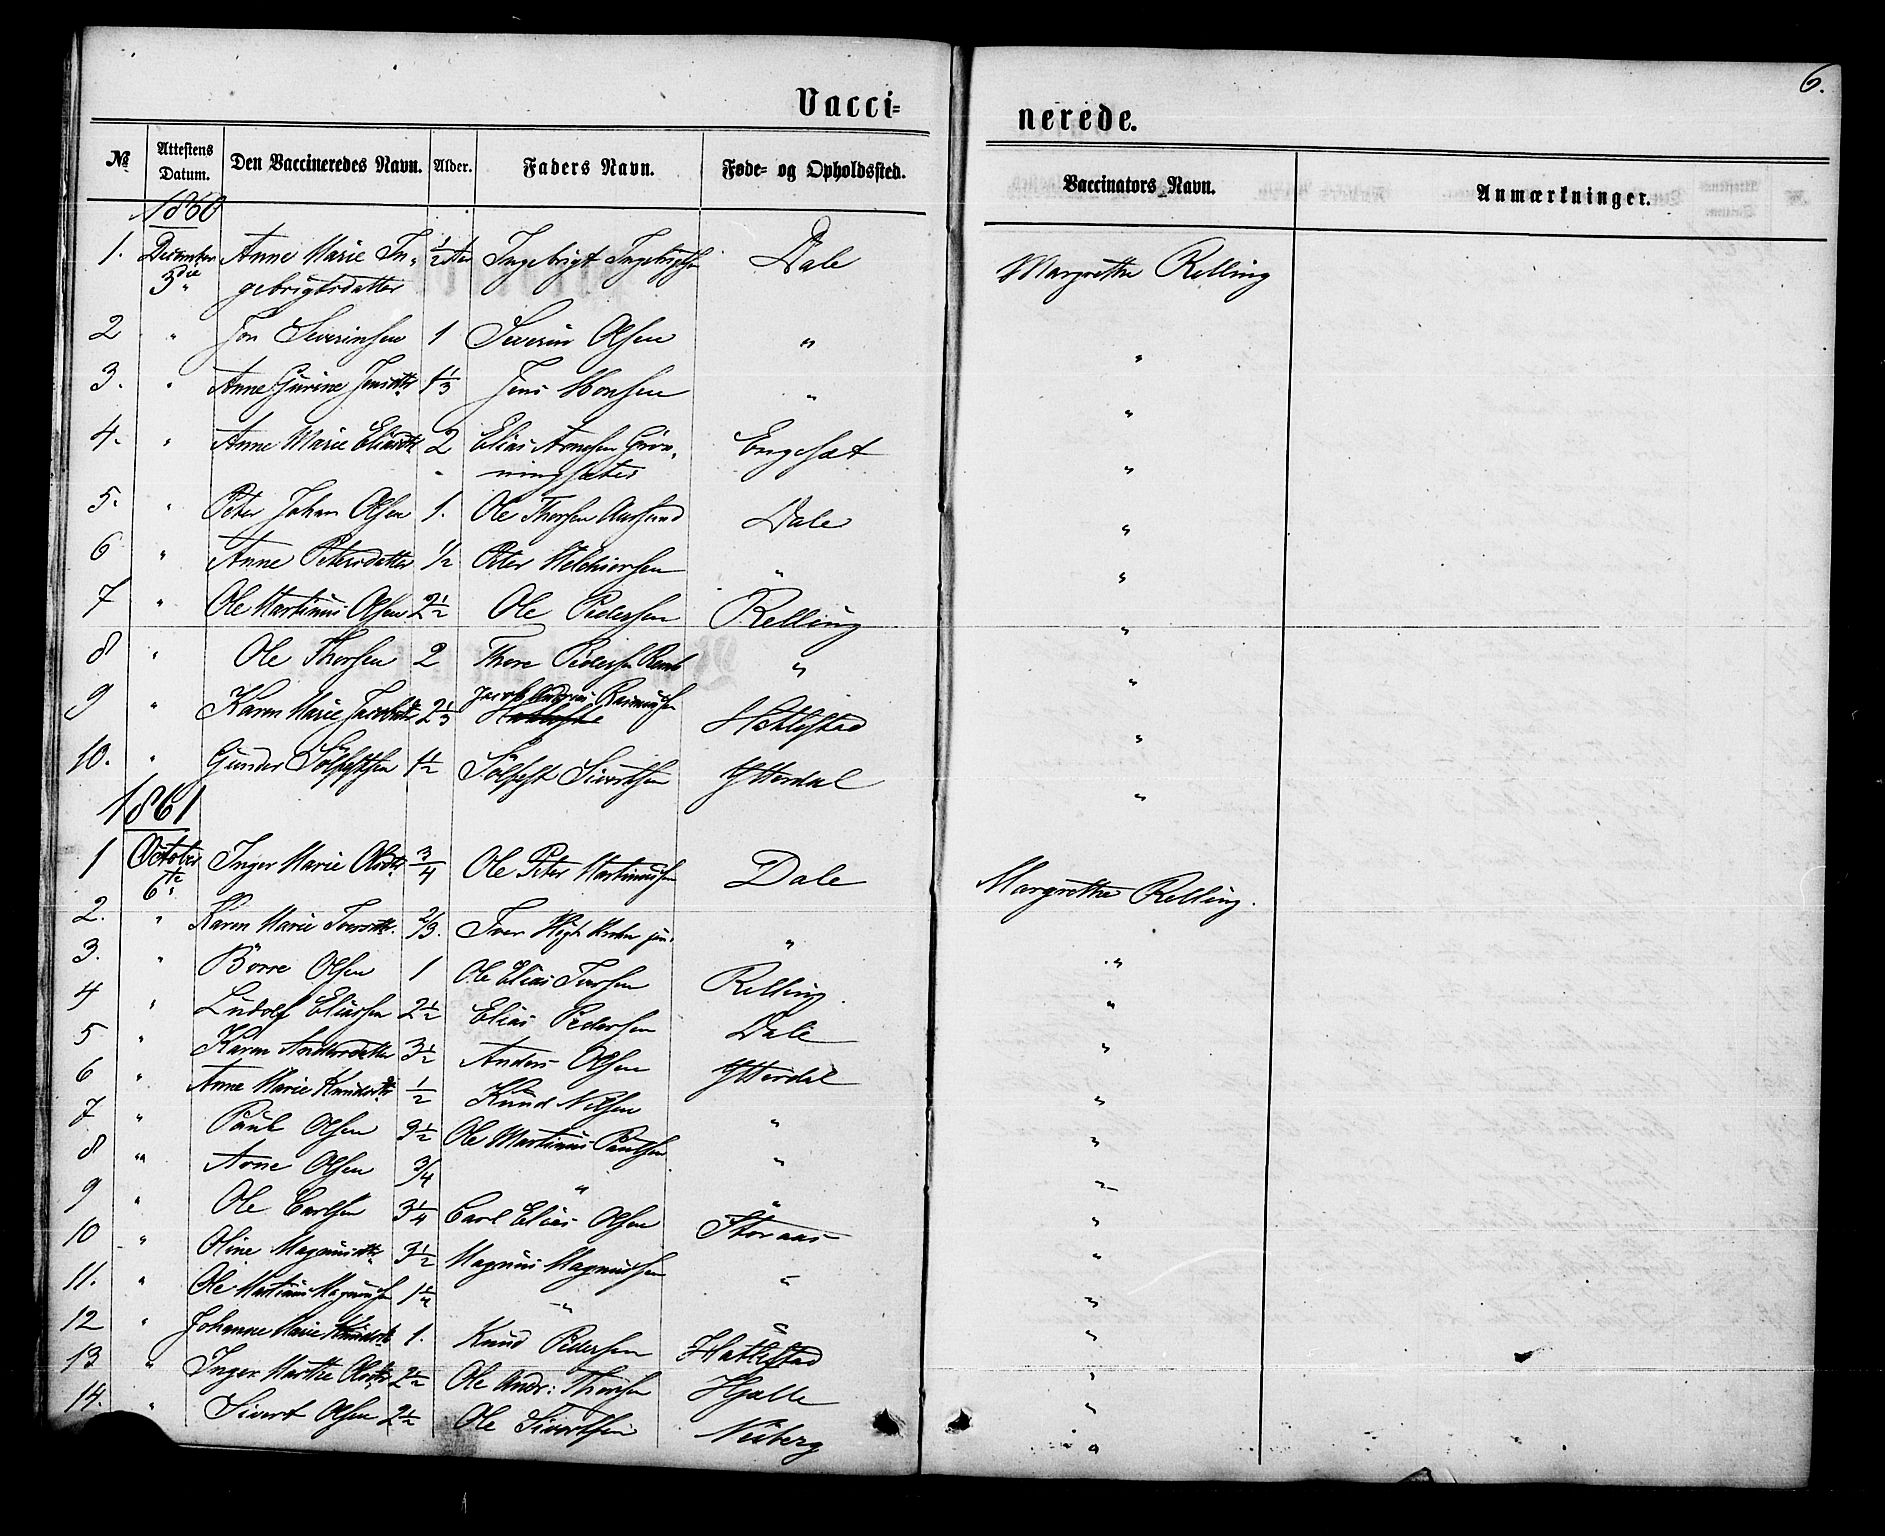 6.
Vacci-
nerede.
№ Attestens Datum. Den Vaccineredes Navn. Alder. Faders Navn. Føde- og Opholdssted. Vaccinators Navn. Anmærkninger.
1860
1. December Anne Marie In- ½ Aar Ingebrigt Ingebrigtsen Dale Margrethe Relling
3die gebrigtsdatter
2 " Jon Severinsen 1 Severin Olsen " "
3. " Anne Gurine Jensdtr 1⅓ Jens Monsen " "
4. " Anne Marie Eliasdtr 2 Elias Arnesen Grøn- Engesæt "
ningsæter
5. " Peter Johan Olsen 1. Ole Thorsen Aarsund Dale "
6 " Anne Petersdatter ½ Peter Melchiorsen " "
7 " Ole Martinus Olsen 2½ Ole Pedersen Relling "
8 " Ole Thorsen 2 Thore Pedersen " "
9 " Karen Marie Jacobsdtr 2⅓ Jacob Andreas Rasmussen Hatlestad "
10. " Gunder Sølfestsen 1½ Sølfest Sivertsen Ytterdal "
1861
1 October Inger Marie Olsdtr ¾ Ole Peter Martinussen Dale Margrethe Relling.
6te
2. " Karen Marie Iversdtr. 2/3. Iver Høgh Krohn jun. "
3. " Börre Olsen 1 Ole Elias Iversen Relling. "
4 " Ludolf Eliassen 2½ Elias Pedersen Dale "
5 " Karen Andersdatter 3½ Anders Olsen Ytterdal "
6 " Anne Marie Knudsdtr ½ Knud Nilsen " "
7 " Paul Olsen 3½ Ole Martinus Paulsen " "
8 " Arne Olsen ¾ " " "
9 " Ole Carlsen 3¼ Carl Elias Olsen Storaas "
10 " Oline Magnusdtr 3½ Magnus Magnussen " "
11. " Ole Martinus Magnussen 1¼ " " "
12 " Johanne Marie Knudsdtr 1. Knud Pedersen Hatlestad "
13 " Inger Marthe Olsdtr 2½ Ole Andr: Thorsen Hjelle "
14. " Sivert Olsen 2½ Ole Sivertsen Neiberg "